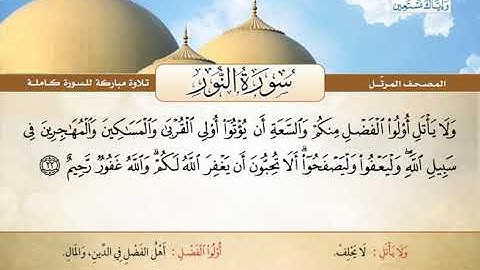 وَإِيَّاكَ نَسْتَعِينُ
المصحف المرتّل
سُورَةُ النُّور
تلاوة مباركة للسورة كاملة
وَلَا يَأْتَلِ أُوْلُواْ ٱلْفَضْلِ مِنكُمْ وَٱلسَّعَةِ أَن يُؤْتُوٓاْ أُوْلِي ٱلْقُرْبَىٰ وَٱلْمَسَٰكِينَ وَٱلْمُهَٰجِرِينَ فِي
سَبِيلِ ٱللَّهِۖ وَلْيَعْفُواْ وَلْيَصْفَحُوٓاْۗ أَلَا تُحِبُّونَ أَن يَغْفِرَ ٱللَّهُ لَكُمْۚ وَٱللَّهُ غَفُورٌ رَّحِيمٌ ٢٢
وَلَا يَأْتَلِ : لَا يَحْلِفْ.
أُوْلُواْ ٱلْفَضْلِ : أَهْلُ الفَضْلِ فِي الدِّينِ، وَالمَالِ.